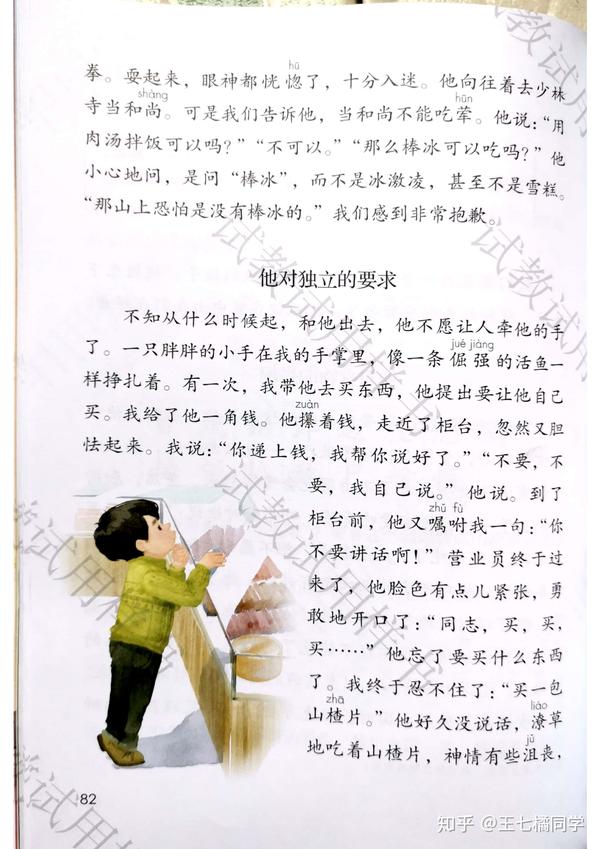 hū
拳。耍起来，眼神都恍惚了，十分入迷。他向往着去少林
shàng hūn
寺当和尚。可是我们告诉他，当和尚不能吃荤。他说：“用
肉汤拌饭可以吗？”“不可以。”“那么棒冰可以吃吗？”他
小心地问，是问“棒冰”，而不是冰激凌，甚至不是雪糕。
“那山上恐怕是没有棒冰的。”我们感到非常抱歉。
他对独立的要求
不知从什么时候起，和他出去，他不愿让人牵他的手
jué jiàng
了。一只胖胖的小手在我的手掌里，像一条倔强的活鱼一
样挣扎着。有一次，我带他去买东西，他提出要让他自己
zuàn
买。我给了他一角钱。他攥着钱，走近了柜台，忽然又胆
怯起来。我说：“你递上钱，我帮你说好了。”“不要，不
要，我自己说。”他说。到了
zhǔ fù
柜台前，他又嘱咐我一句：“你
不要讲话啊！”营业员终于过
来了，他脸色有点儿紧张，勇
敢地开口了：“同志，买，买，
买……”他忘了要买什么东西
了。我终于忍不住了：“买一包
zhā liáo
山楂片。”他好久没说话，潦草
jǔ
地吃着山楂片，神情有些沮丧，
82
试教试用样书
试教试用样书
试教试用样书
知乎 @王七橘同学